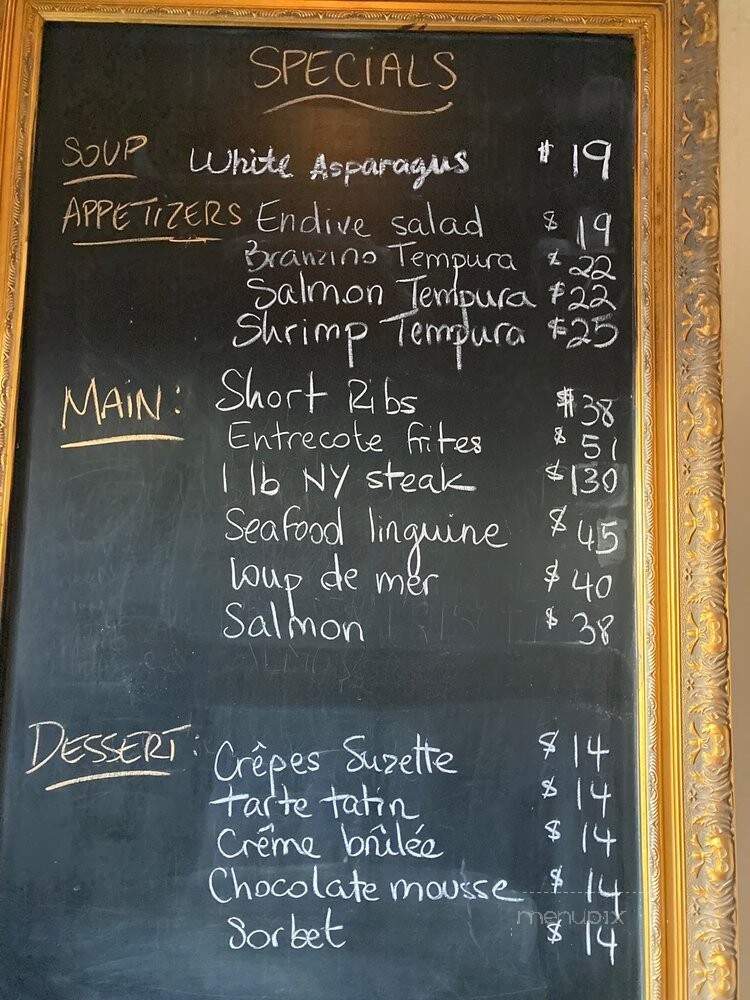 SPECIALS
SOUP White Asparagus $19
APPETIZERS Endive salad $19
Branzino Tempura $22
Salmon Tempura $22
Shrimp Tempura $25
MAIN: Short Ribs $38
Entrecote frites $51
1 lb NY steak $130
Seafood linguine $45
loup de mer $40
Salmon $38
DESSERT: Crêpes Suzette $14
tarte tatin $14
Crême brûlée $14
Chocolate mousse $14
menupix
Sorbet $14